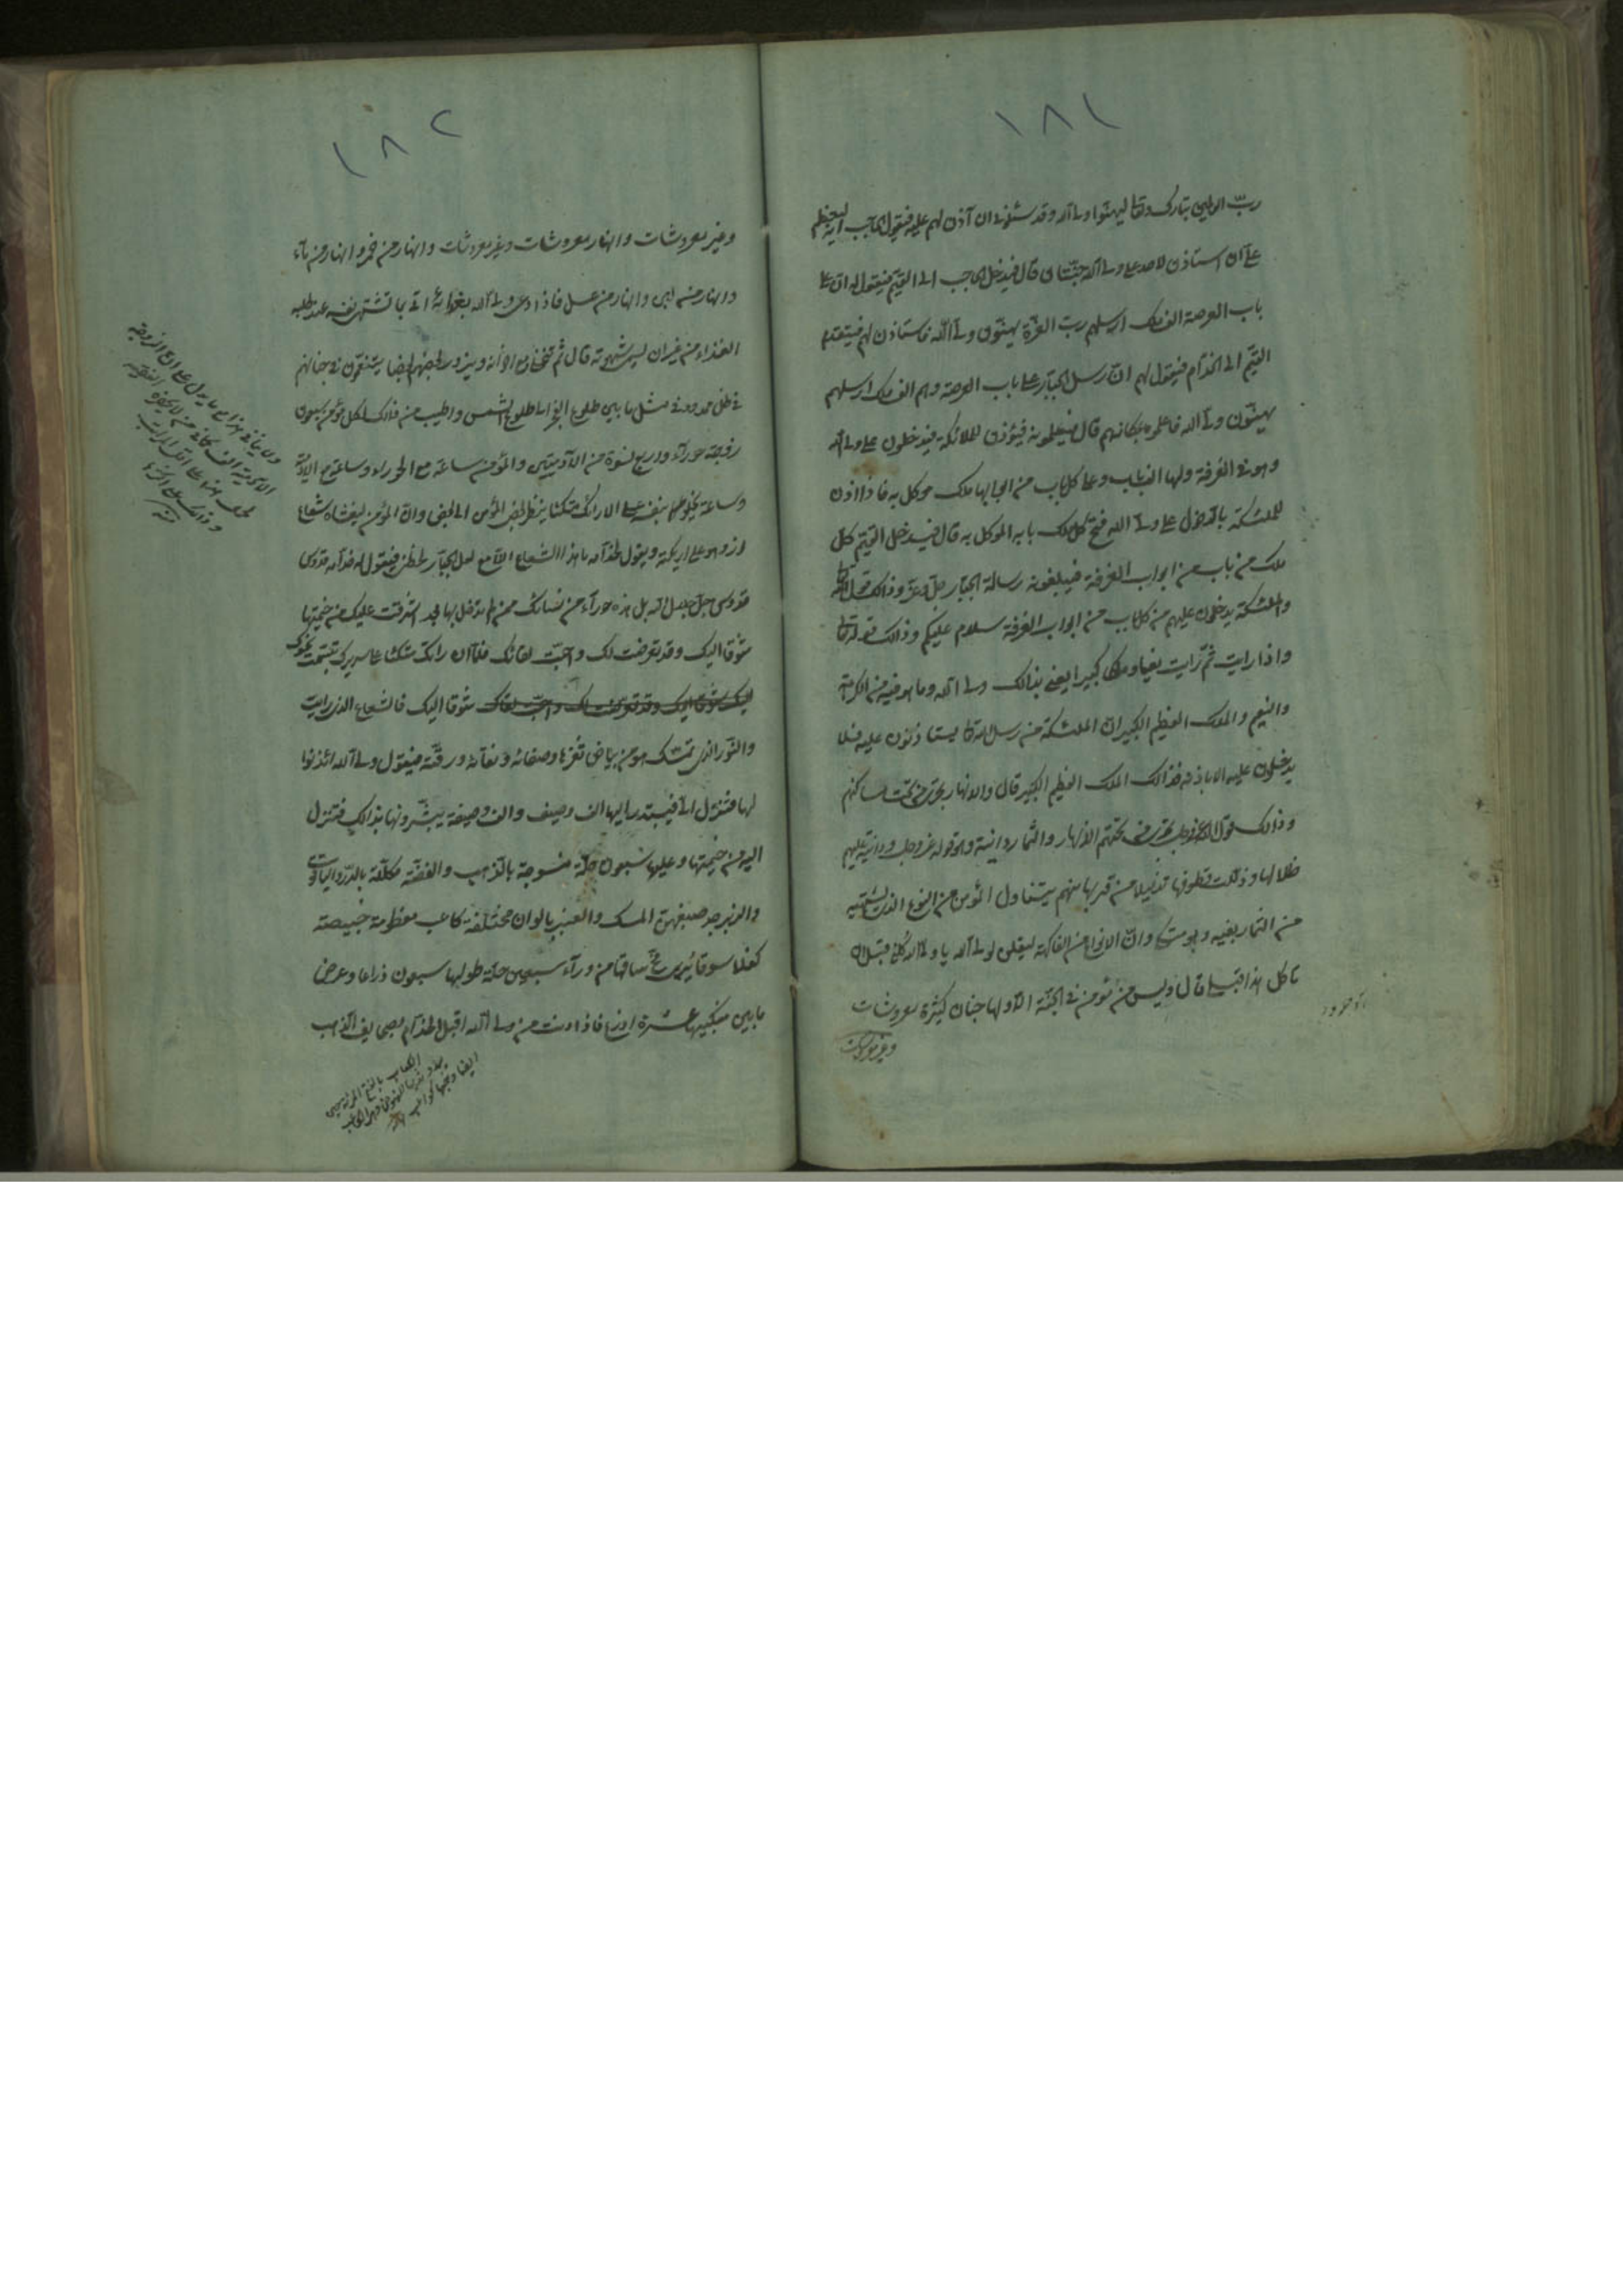 ١٨١
ربّ العالمين تبارك وتعالى ليهنّوا ولى الله وقد سئلونى ان آذن لهم عليه فيقول الحاجب انه ليعظم
علىّ ان استاذن لاحد على ولى الله جنّتان قال فيدخل الحاجب الى القيّم فيقول له ان على
باب العرصة الف ملك ارسلهم ربّ العزّة يهنّون ولىّ الله فاستاذن لهم فيتقدم
القيّم الى الخدّام فيقول لهم انّ رسل الجبّار على باب العرصة وهم الف ملك ارسلهم
يهنّون ولىّ الله فاعلموه بمكانهم قال فيعلمونه فيؤذن للملائكة فيدخلون على ولى الله
وهو فى الغرفة ولها الف باب وعلى كل باب من ابوابها ملك موكل به فاذا اذن
للملئكة بالدخول على ولىّ الله فتح كل ملك بابه الموكل به قال فيدخل القيّم كلّ
ملك من باب من ابواب الغرفة فيبلغونه رسالة الجبّار جلّ وعزّ وذالك قول الله تعالى
والملئكة يدخلون عليهم من كل باب من ابواب الغرفة سلام عليكم وذالك قوله تعالى
واذا رايت ثمّ رايت نعيما وملكا كبيرا يعنى بذالك ولى الله وما هو فيه من الكرامة
والنعيم والملك العظيم الكبير انّ الملئكة من رسل الله تعالى يستاذنون عليه فلا
يدخلون عليه الا باذنه فذالك الملك العظيم الكبير قال والانهار تجرى من تحت مساكنهم
وذالك قول الله عزوجل تجرى من تحتهم الانهار والثمار دانية وهو قوله عزوجل ودانية عليهم
ظلالها وذللت قطوفها تذليلا من قربها منهم يتناول المؤمن من النوع الذى يشتهيه
من الثمار بفيه وهو متكئ وانّ الانواع من الفاكهة ليقلن لولى الله يا ولىّ الله كلنى قبل ان
تاكل هذا قبلى قال وليس من مؤمن فى الجنّة الّا ولها جنان كثيرة معروشات
وغير معروشات
١٨٢
وغير معروشات وانهار معروشات وغير معروشات وانهار من خمر وانهار من مآء
وانهار من لبن وانهار من عسل فاذا دعى ولى الله بغذائه اتى بما تشتهى نفسه عند طلبه
الغذاء من غير ان يسمى شهوته قال ثم يتخلى مع اخوانه ويزور بعضهم بعضا ويتنعمون فى جناتهم
فى ظل ممدود فى مثل ما بين طلوع الفجر الى طلوع الشمس واطيب من ذالك لكل مؤمن سبعون
زوجة حورآء واربع نسوة من الآدميّين والمؤمن ساعة مع الحوراء وساعة مع الآدمية
وساعة يخلو بنفسه على الارائك متكئا ينظر بعض المؤمن الى بعض وانّ المؤمن ليغشاه شعاع
نور وهو على اريكته ويقول لخدّامه ما هذا الشعاع اللّامع لعل الجبّار لحظنى فيقول له خدّامه قدّوس
قدّوس جلّ جلال الله بل هذه حورآء من نسائك ممن لم تدخل بها بعد اشرفت عليك من خيمتها
شوقا اليك وقد تعرضت لك واحبّت لقائك فلمّا ان راتك متكئا على سريرك تبسّمت نحوك
شوقا اليك فالشعاع الذى رايت
والنّور الذى غشيك هو من بياض ثغرها وصفائه ونقائه ورقّته فيقول ولىّ الله ائذنوا
لها فتنزل الىّ فيبتدر اليها الف وصيف والف وصيفة يبشّرونها بذالك فتنزل
اليه من خيمتها وعليها سبعون حلّة منسوجة بالذّهب والفضّة مكلّلة بالدّرّ والياقوت
والزبرجد صبغهنّ المسك والعنبر بالوان مختلفة كاعب مقطومة خميصة
كفلاء سوقاء يرى مخّ ساقها من ورآء سبعين حلّة طولها سبعون ذراعا وعرض
ما بين منكبيها عشرة اذرع فاذا دنت من ولى الله اقبل الخدّام بصحايف الذّهب